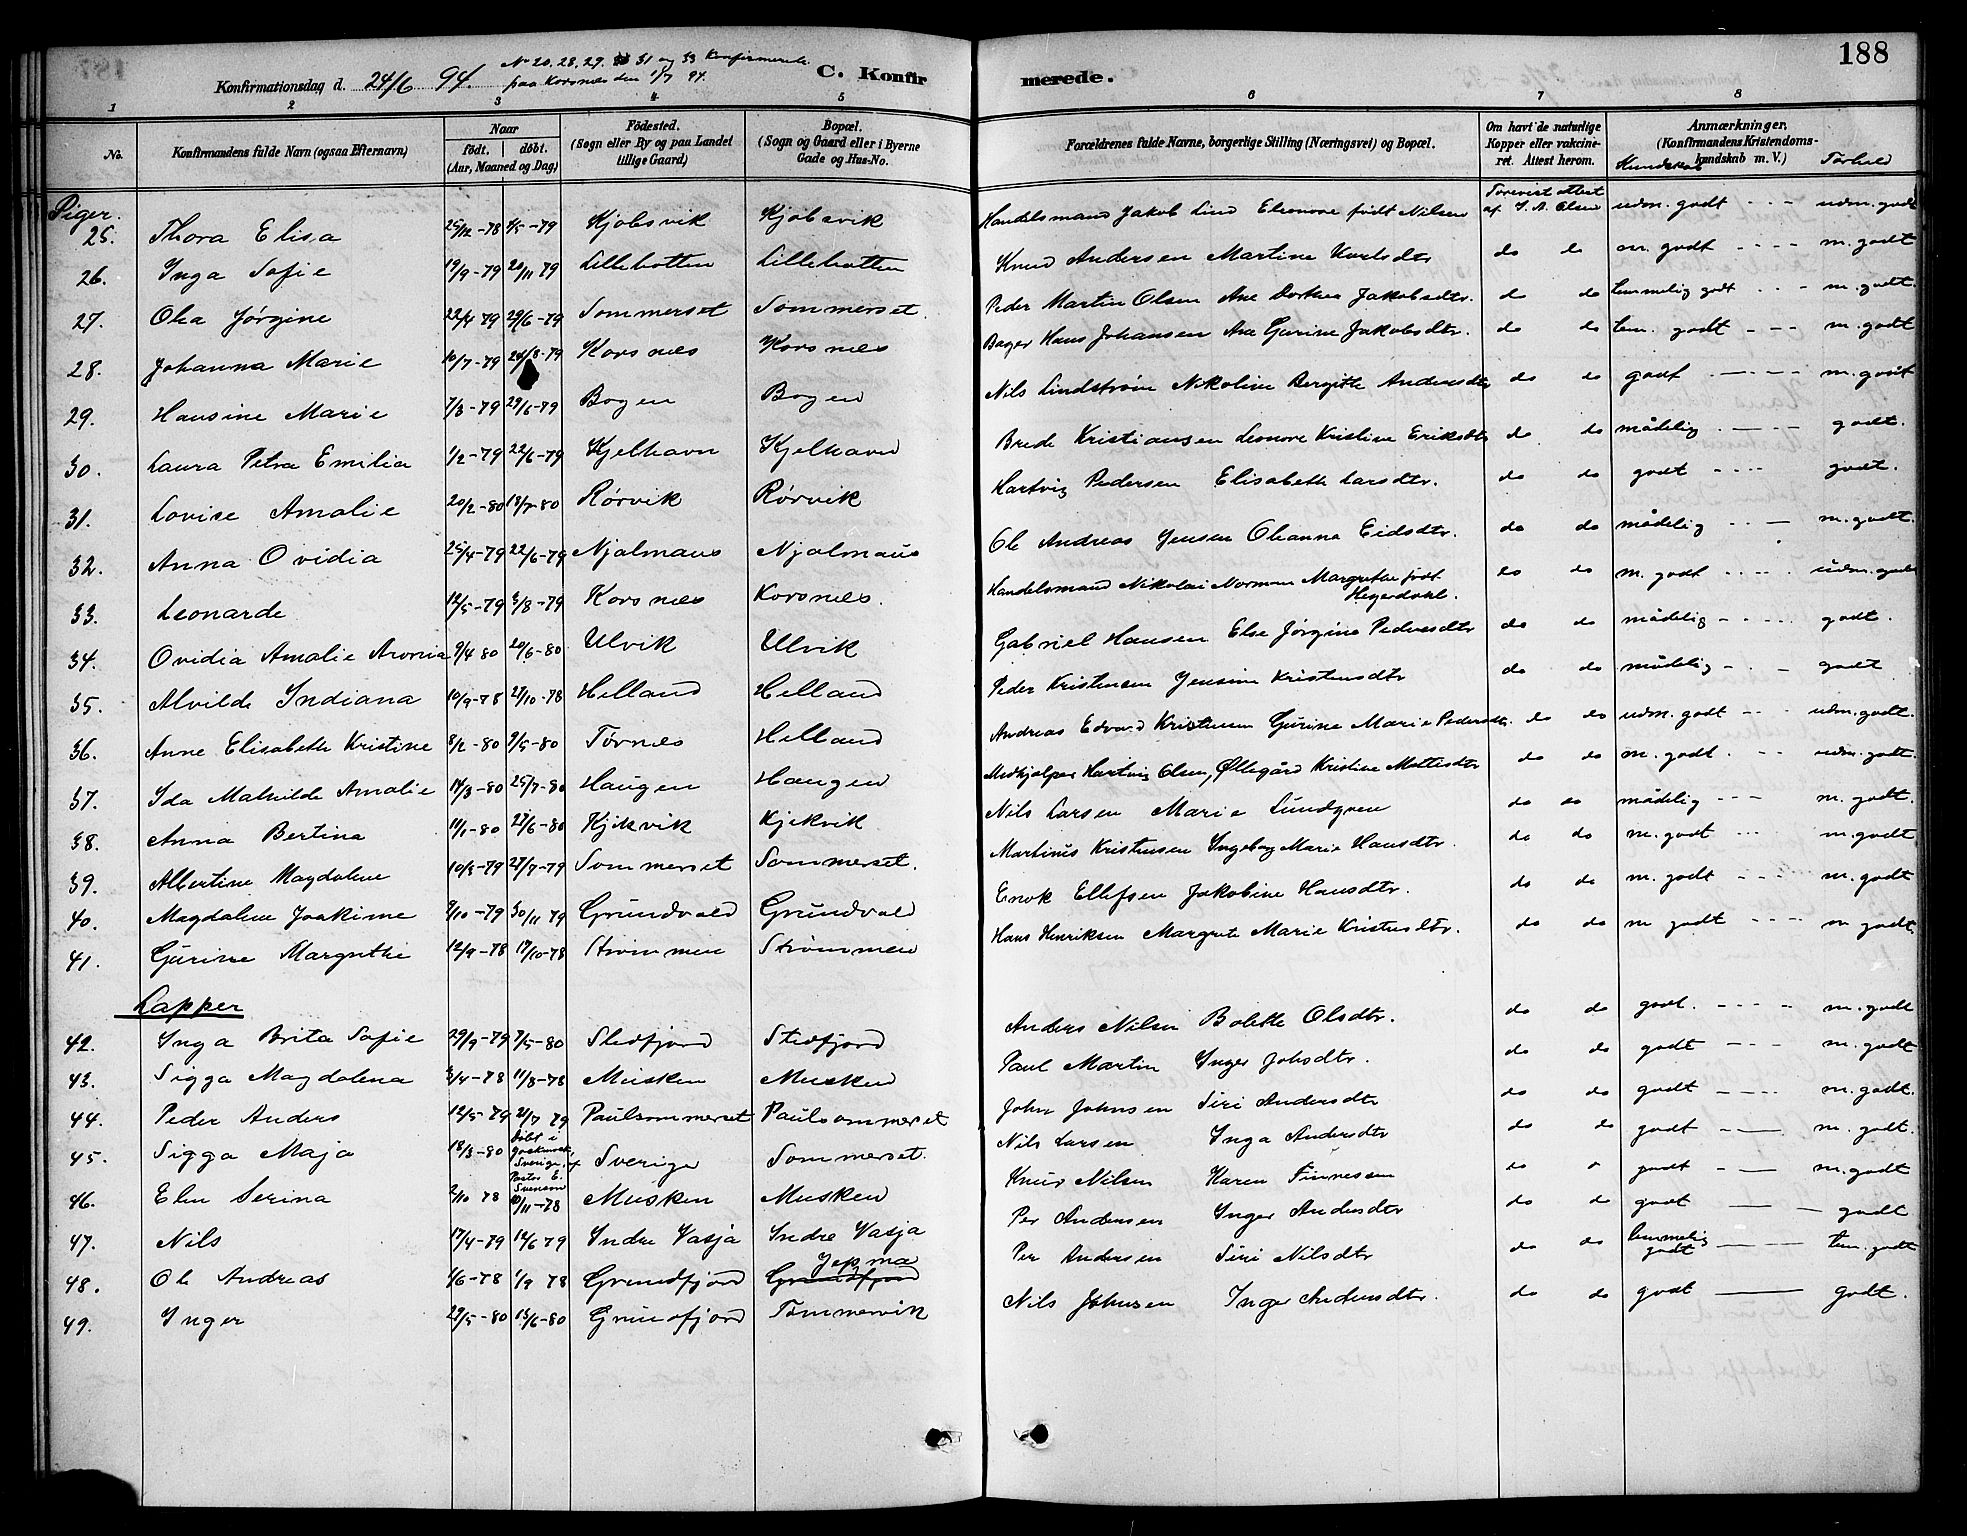 188
Konfirmationsdag d. 24/6 94. No 20. 28. 29. 31 og 33 Konfirmerede
paa Korsnæs den 1/7 94.
C. Konfirmerede.
1 2 3 4 5 6 7 8
No. Konfirmandens fulde Navn (ogsaa Efternavn) Naar født. døbt. (Aar, Maaned og Dag) Fødested. (Sogn eller By og paa Landet tillige Gaard) Bopæl. (Sogn og Gaard eller i Byerne Gade og Hus-No. Forældrenes fulde Navne, borgerlige Stilling (Næringsvei) og Bopæl. Om havt de naturlige Kopper eller vakcineret. Attest herom. Anmærkninger. (Konfirmandens Kristendomskundskab m. V.) Kundskab Forhold
Piger.
25. Thora Elisa 25/12-78 4/5-79 Kjøbsvik Kjøbsvik Handelsmand Jakob Lind Eleonore født Nilsen Forevist attest af I. A. Olsen udm. godt udm. godt
26. Inga Sofie 19/9-79 20/11 79 Lillebotten Lillebotten Knud Andersen Martine Karlsdtr do do m. godt m. godt
27. Olea Jørgine 22/4 79 29/6-79 Sommerset Sommerset. Peder Martin Olsen Ane Dorthea Jakobsdtr. do do temmelig godt m. godt.
28. Johanna Marie 10/7-79 24/8-79 Korsnæs Korsnæs Bager Hans Johansen Ane Gurine Jakobsdtr. do do tem. godt m. godt
29. Hansine Marie 7/3-79 29/6-79 Bogen Bogen Nils Lindstrøm Nikoline Bergitte Andersdtr do do godt m. godt
30. Laura Petra Emilia 1/2-79 22/6-79 Kjelhavn Kjelhavn Brede Kristiansen Leonore Kristine Eriksdtr do do mådelig godt.
31. Lovise Amalie 20/2-80 18/7-80 Rørvik Rørvik Hartvig Pedersen Elisabeth Larsdtr. do do godt godt.
32. Anna Ovidia 25/4-79 22/6-79 Njalmaus Njalmaus Ole Andreas Jensen Oleanna Eidsdtr. do do mådelig m. godt.
33. Leonarde 12/5-79 3/8-79 Korsnæs Korsnæs. Handelsmand Nikolai Norman Margrethe født Heyerdahl. do do m. godt udm. godt
34. Ovidia Amalie Aronia 9/4 80 20/6-80 Ulvik Ulvik Gabriel Hansen Else Jørgine Pedersdtr do do mådelig godt.
35. Alvilde Indiana 10/9-78 27/10-78 Helland Helland Peder Kristensen Jensine Kristensdtr do do mådelig godt
36. Anne Elisabeth Kristine 8/2-80 9/5-80 Tørnæs Helland Andreas Edvard Kristensen Gurine Marie Pedersdtr. do do udm. godt udm. godt.
37. Ida Mathilde Amalie 14/3-80 25/7-80 Haugen Haugen Medhjælper Hartvig Olsen, Øllegård Kristine Mattisdtr do do m. godt. udm. godt.
38. Anna Bertina 11/1-80 27/6-80 Kjikvik Kjekvik Nils Larsen Marie Lundgren do do mådelig m. godt.
39. Albertine Magdalene 10/3-79 27/7-79 Sommerset Sommerset. Martinus Kristensen Ingebog Marie Hansdtr. do do m. godt m. godt
40. Magdalene Joakime 9/10-79 30/11 79 Grundvald Grundvald Enok Ellefsen Jakobine Hansdtr. do do m. godt m. godt
41. Gurine Margrethe 12/9-78 17/10-78 Strømmen Strømmen Hans Henriksen Margrete Marie Kristensdtr. do do m godt m godt.
Lapper
42. Inga Brita Sofie 29/9-79 7/5-80 Stedfjord Stedfjord Anders Nilsen Bolette Olsdtr. do do godt. m. godt
43. Sigga Magdalena 3/4-78 11/8-78 Musken Musken Paul Martin Inger Johsdtr. do do godt m. godt
44. Peder Anders 12/5-79 21/7 79 Paulsommerset Paulsommerset John Johnsen Siri Andersdtr do do godt m. godt
45. Sigga Maja 18/3-80 døbt i Sverige, af Pastor E. Svenson Sverige Sommerset. Nils Larsen Inga Andersdtr do do godt m. godt.
46. Elen Serina 2/10 78 10/11-78 Musken Musken Knud Nilsen Karen Finnesen do godt m. godt
47. Nils 17/4-79 14/6 79 Indre Vasja Indre Vasja Per Andersen Inger Andersdtr do do godt godt
48. Ole Andreas 1/6-78 1/9 78 Grundfjord Grundfjord Jepma Per Andersen Siri Nilsdtr do do temmelig godt tem. godt
49. Inger 29/5-80 13/6-80 Grundfjord Tømmervik Nils Johnsen Inger Andersdtr. do do godt godt.